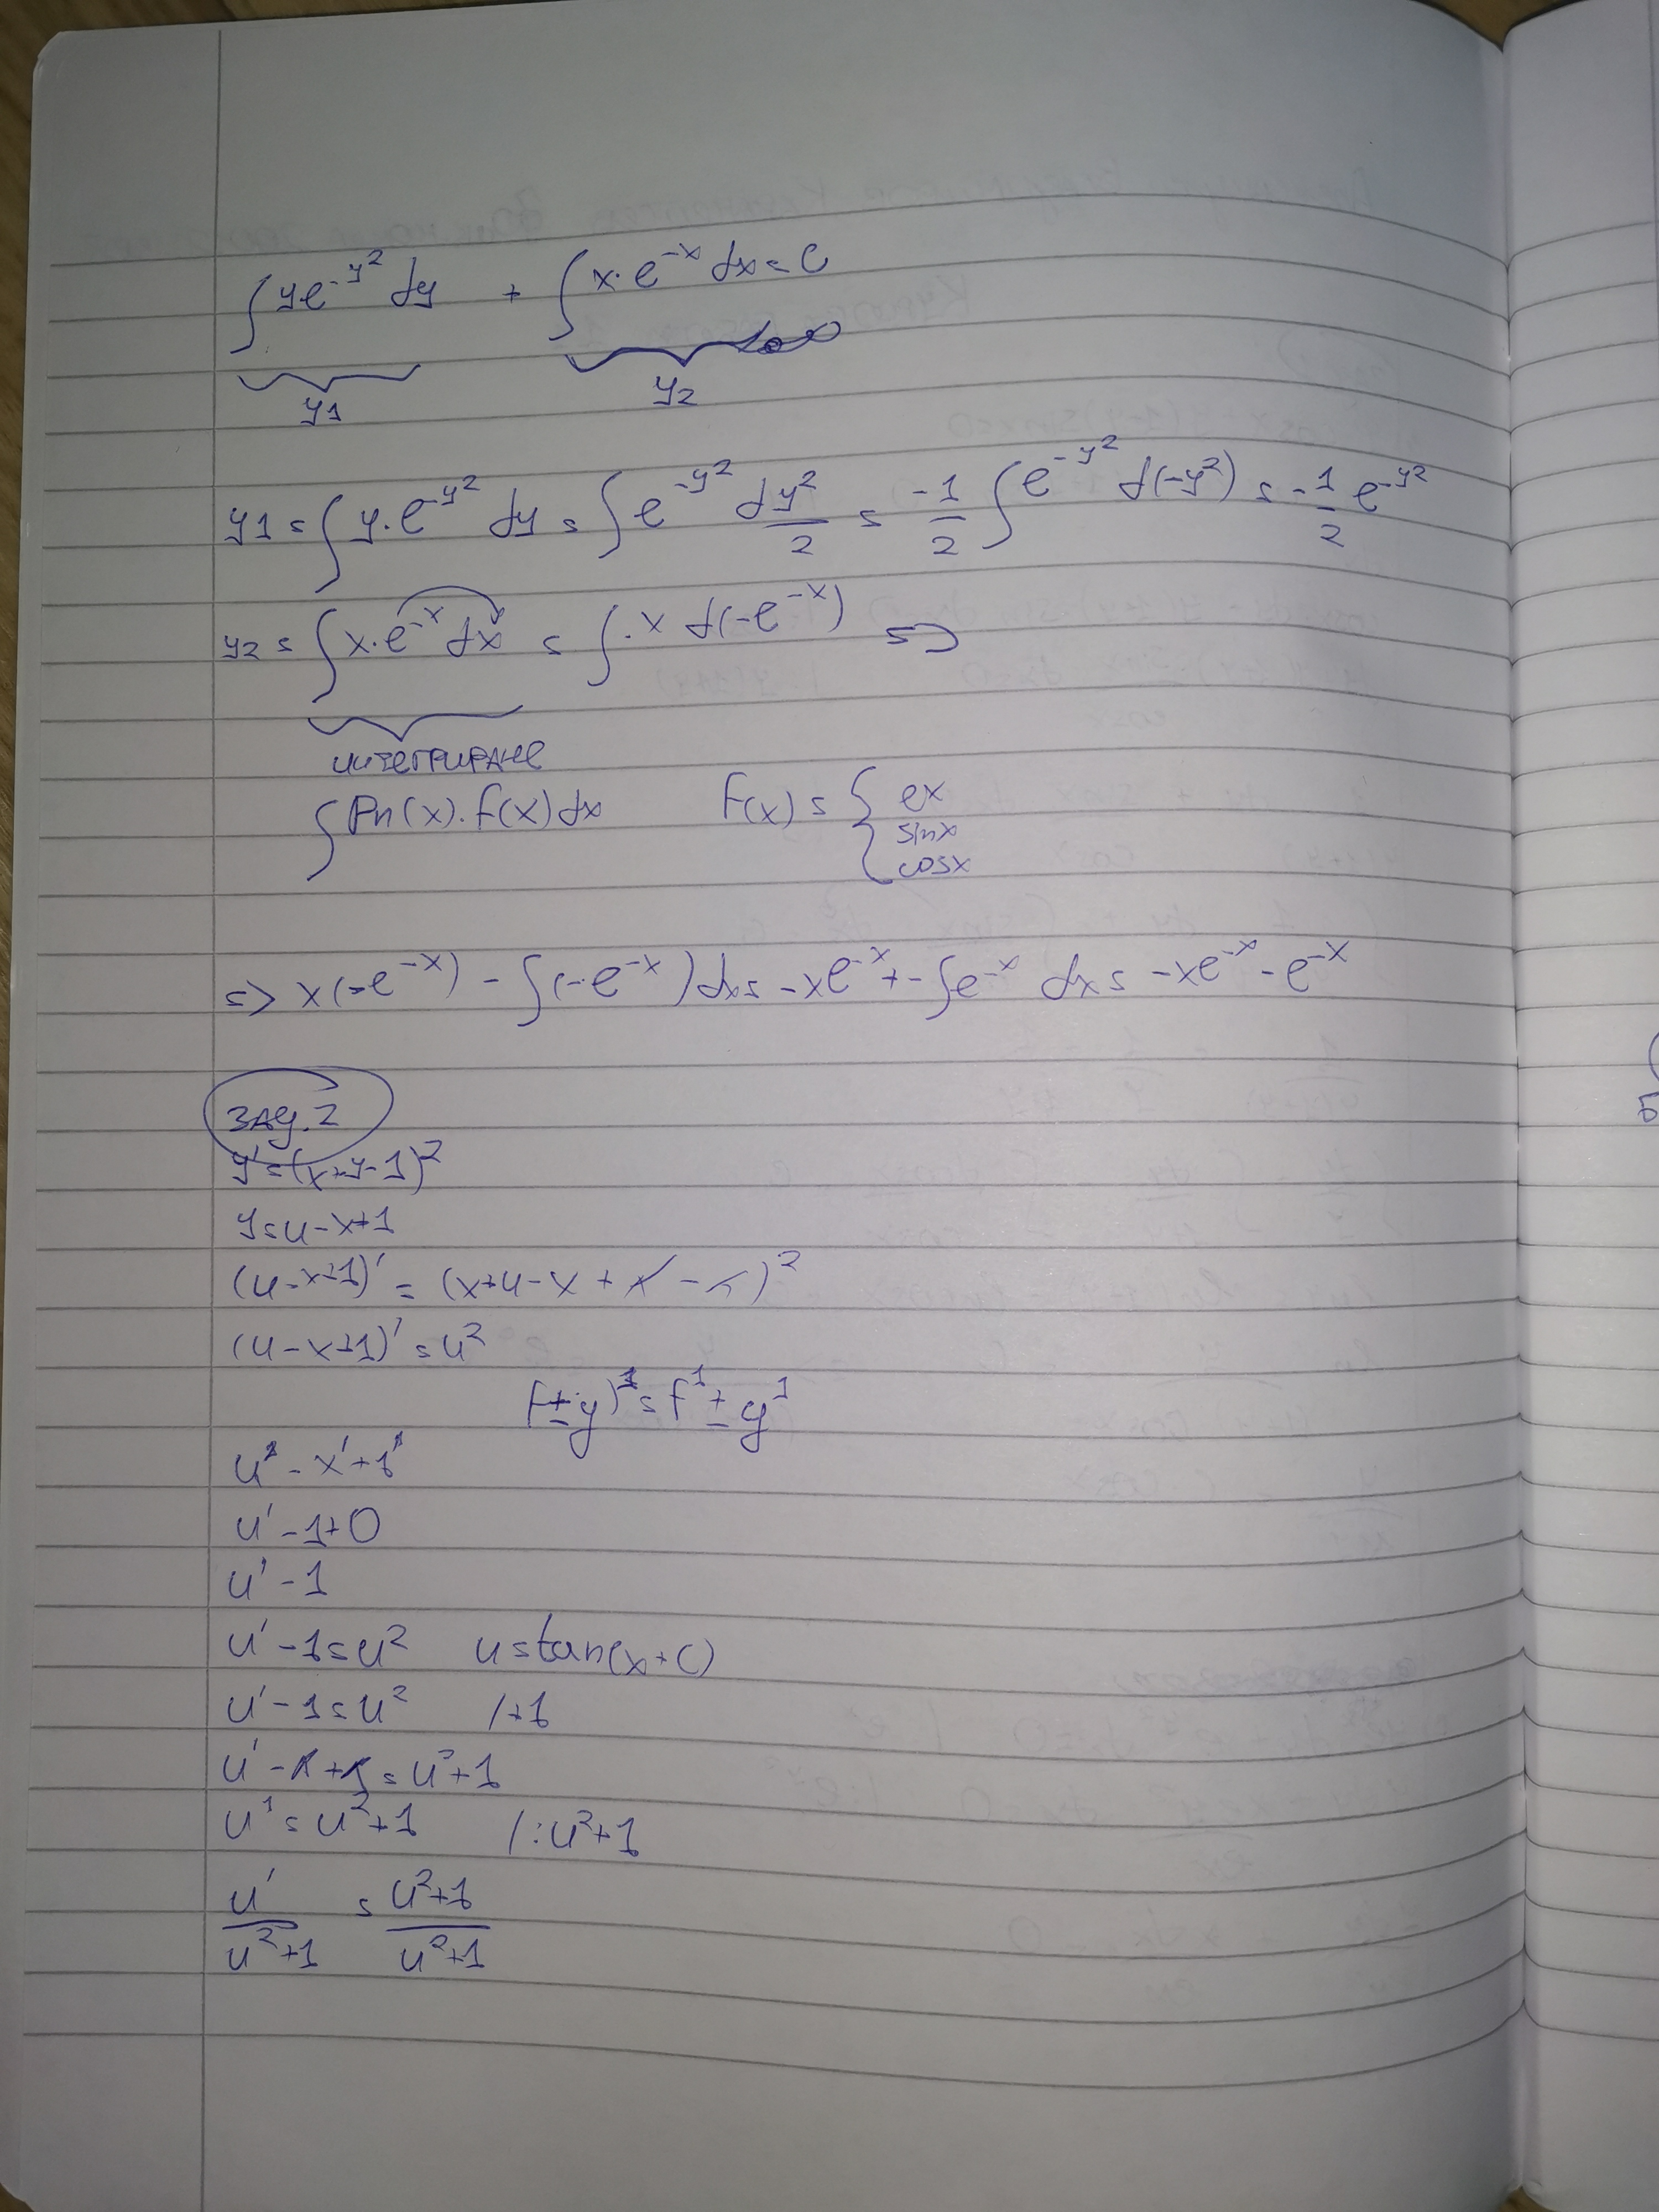 ∫ye^-y² dy + ∫x.e^-x dx = C
y1 y2
y1 = ∫y.e^-y² dy = ∫e^-y² dy²/2 = -1/2 ∫e^-y² d(-y²) = -1/2 e^-y²
y2 = ∫x.e^-x dx = ∫.x d(-e^-x) =>
интегриране
∫Pn(x).f(x)dx F(x) = { ex
sinx
cosx
=> x(-e^-x) - ∫(-e^-x)dx = -xe^-x + - ∫e^-x dx = -xe^-x - e^-x
зад.2
y' = (x+y-1)²
y = u-x+1
(u-x+1)' = (x+u-x+1-1)²
(u-x+1)' = u²
f±y)¹ = f¹ ± y¹
u¹ - x' + 1¹
u' - 1 + 0
u' - 1
u' - 1 = u² u = tan(x+C)
u' - 1 = u² /+1
u' - 1 + 1 = u² + 1
u¹ = u² + 1 /:u²+1
u'/u²+1 = u²+1/u²+1